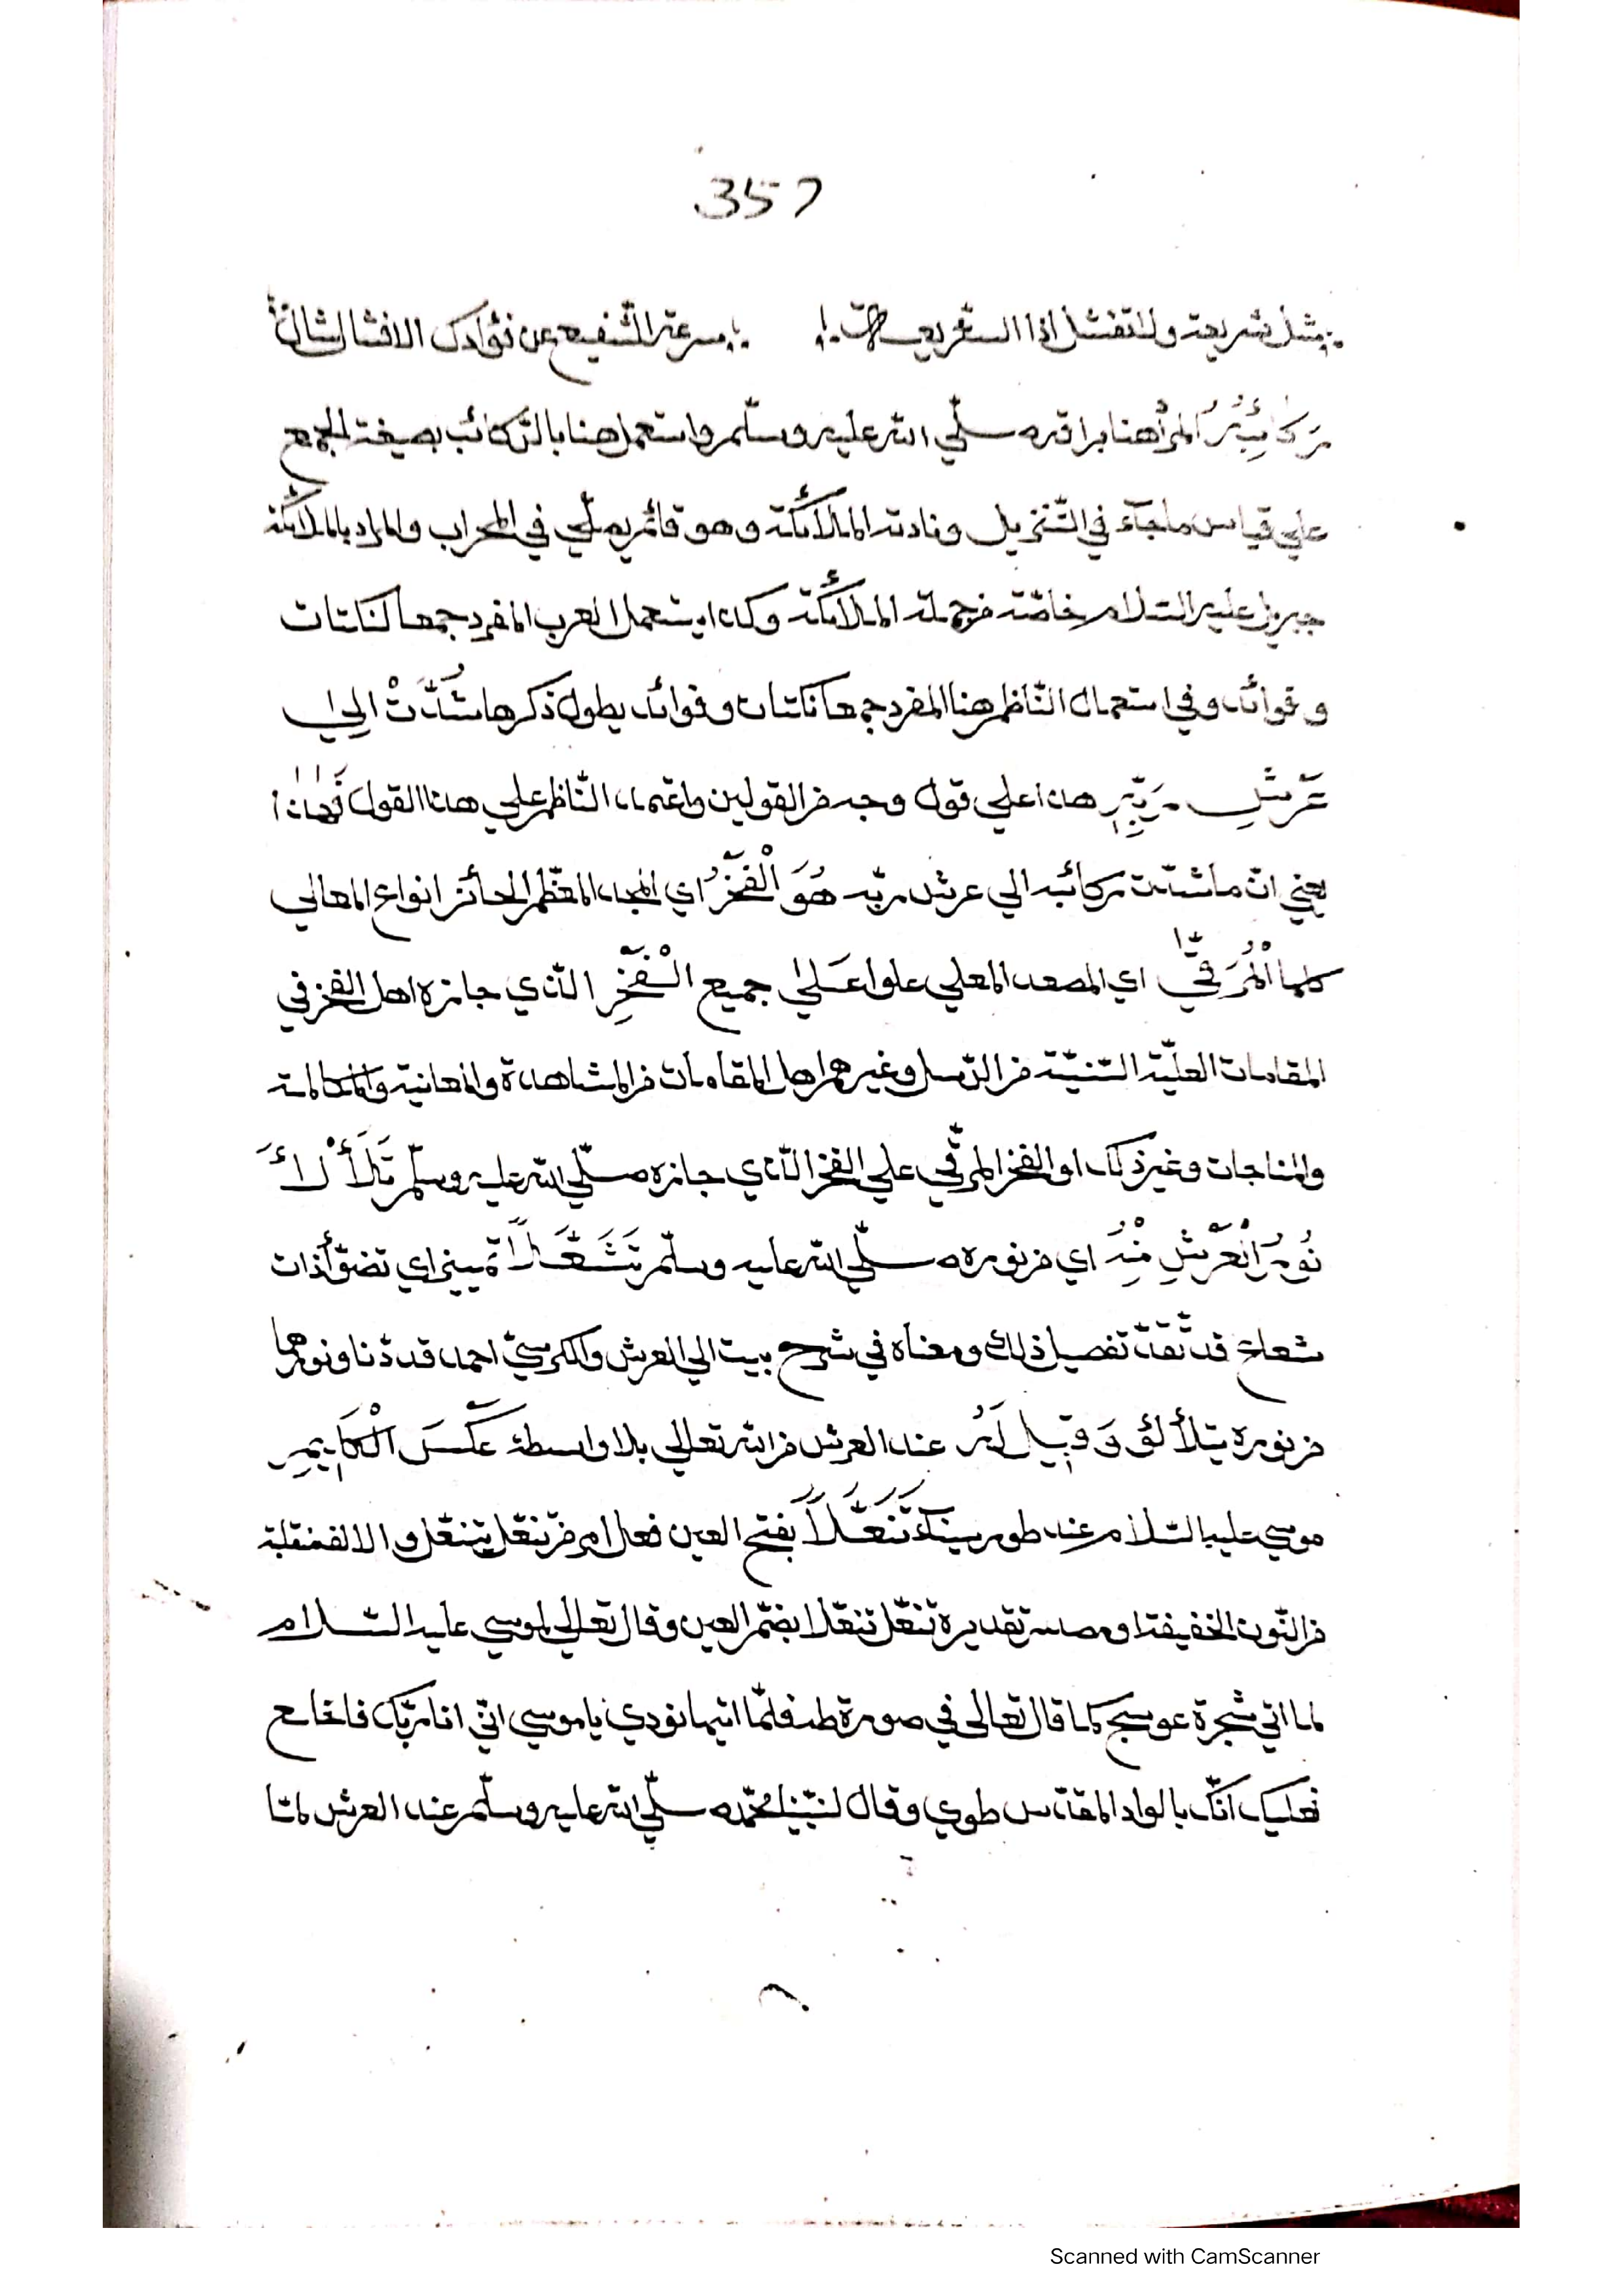 357
ركائبه المرأ هنا براقه صلّي الله عليه وسلّم واستعمل هنا بالرّكائب بصيغة الجمع
علي قياس ما جآء في التّنزيل ونادته الملائكة وهو قائم يصلّي في المحراب والمراد بالملائكة
جبريل عليه السّلام خاصّة من جملة الملائكة وكان يستعمل العرب المفرد جمعا لنكتات
وفوائد وفي استعمال النّاظم هنا المفرد جمعا نكتات وفوائد يطول ذكرها شُدَّتْ الِي
عَرْشِ رَبِّهِ هذا علي قول وجه من القولين واعتماد النّاظم علي هذا القول فَهٰذَا
يعني انّ ما شدّت ركائبه الي عرش ربّه هُوَ الْفَخْرُ اي المجد المعظّم الحائز انواع المعالي
كلها الْمُرَقّٰي اي المصعد المعلي علوا عَلٰي جميع الْفَخْرِ الّذي حازه اهل الفخر في
المقامات العليّة السّنيّة من الرّسل وغيرهم اهل المقامات من المشاهدة والمعانية والمكالمة
والمناجات وغير ذلك او الفخر المرقّي علي الفخر الّذي حازه صلّي الله عليه وسلّم تَلَأْلَأَ
نُورُ الْعَرْشِ مِنْهُ اي من نوره صلّي الله عليه وسلّم تَشَعُّلًا تمييز اي تضوّأ ذات
شعاع قد تقدّم تفصيل ذلك ومعناه في شرح بيت الي العرش والكرسيّ احمد قد دنا ونورهما
من نوره يتلألؤ وَقِيلَ لَهُ عند العرش من الله تعالي بلا واسطة عَكْسَ الْكَلِيمِ
موسي عليه السّلام عند طور سيناء تَنَعَّلًا بفتح العين فعل امر من تنعّل يتنعّل والالف منقلبة
من النّون الخفيفة او مصدر تقديره تنعّل تنعّلا بضمّ العين وقال تعالي لموسي عليه السّلام
لما اتي شجرة عوسج كما قال تعالى في صورة طه فلمّا اتيها نودي يا موسي انّي انا ربّك فاخلع
نعليك انّك بالواد المقدّس طوي وقال لنبيّنا محمّد صلّي الله عليه وسلّم عند العرش لمّا
Scanned with CamScanner